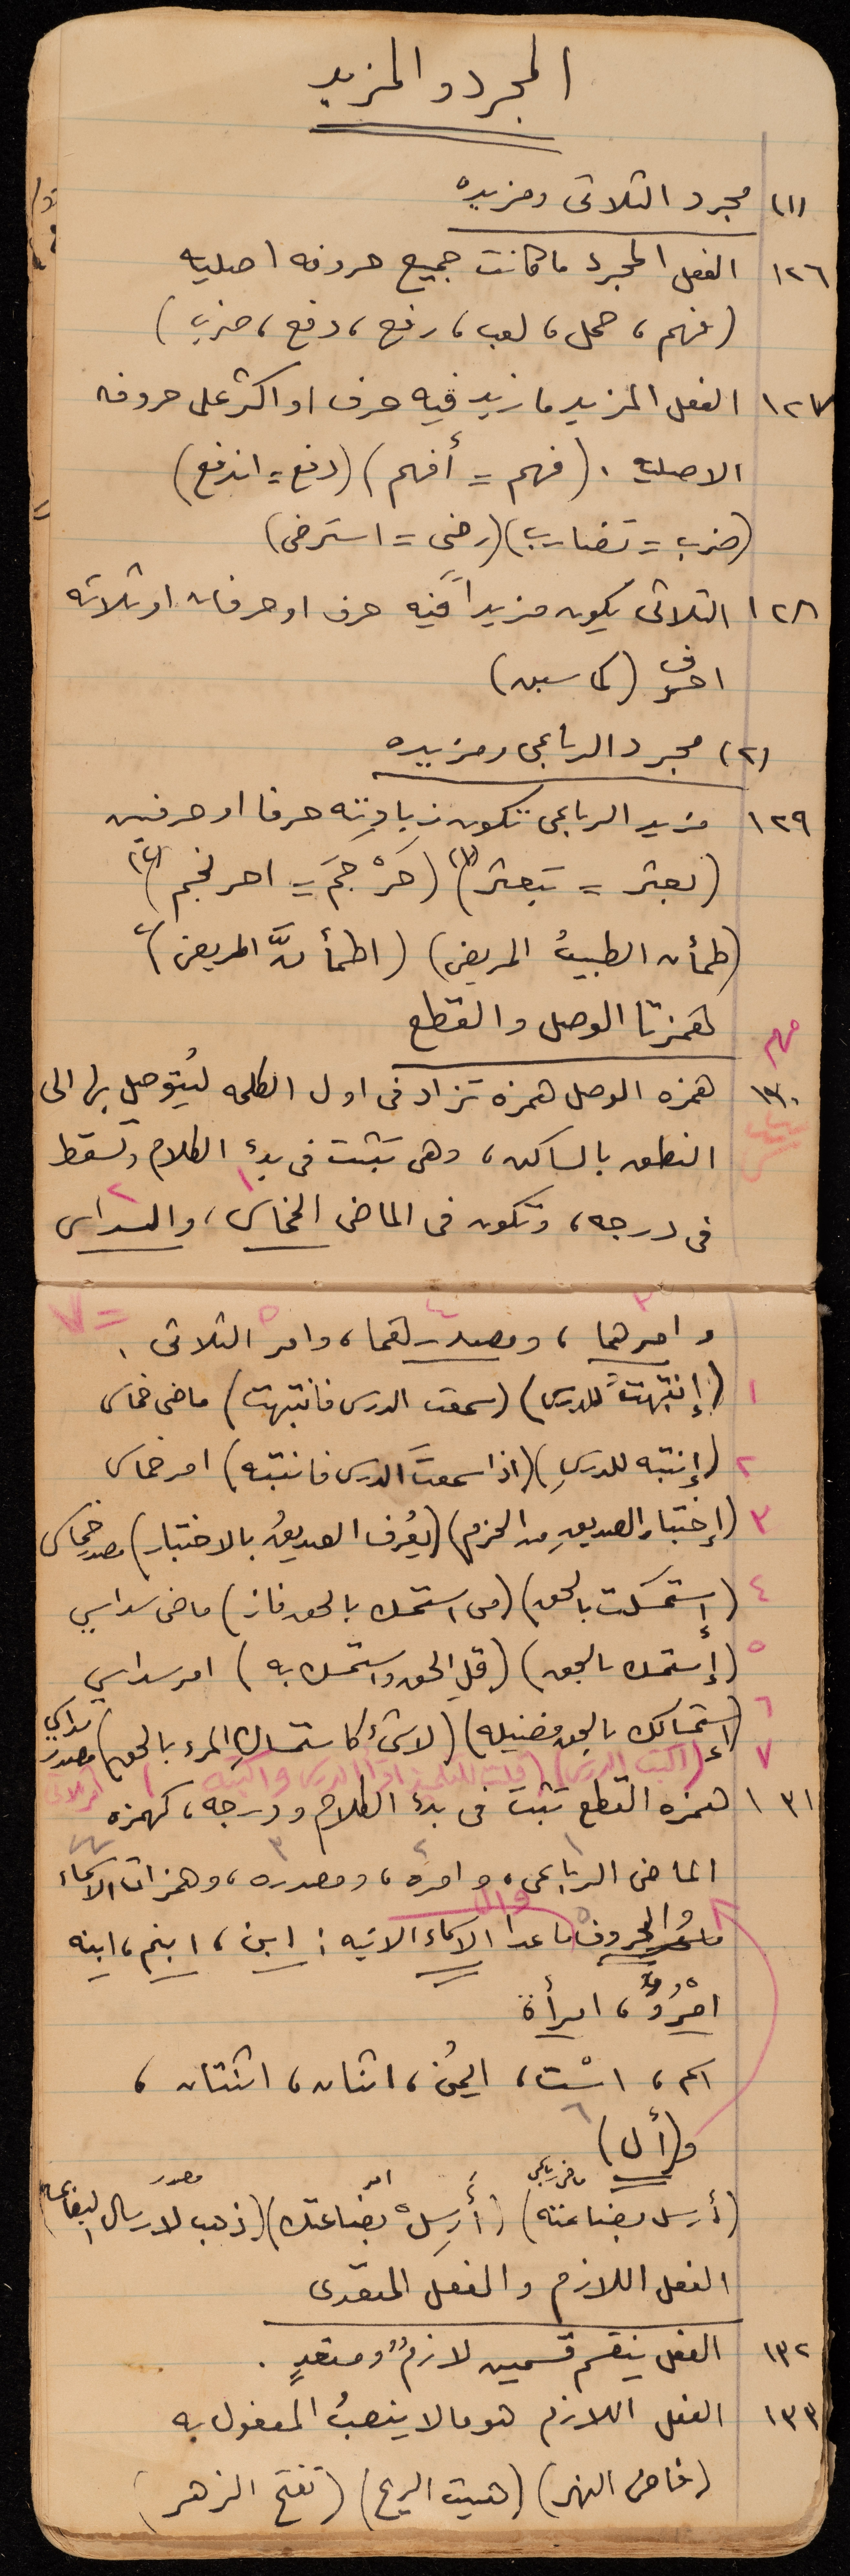 المجرد والمزيد
(١) مجرد الثلاثى ومزيده
١٢٦ الفعل المجرد ما كانت جميع حروفه اصليه
(فهم، حمل، لعب، رفع، دفع، ضرب)
١٢٧ الفعل المزيد ما زيد فيه حرف او اكثر على حروفه
الاصليه. (فهم = أفهم) (دفع = اندفع)
(ضرب = تضارب) (رضى = استرضى)
١٢٨ الثلاثى يكون مزيداً فيه حرف او حرفان او ثلاثه
احرف (كما سبق)
(٢) مجرد الرباعى ومزيده
١٢٩ مزيد الرباعى تكون زيادته حرفا او حرفين
(بعثر = تبعثر)(١) (حَرْجَمَ = احرنجم)(٢)
(طمأن الطبيبُ المريض) (اطمأنَّ المريض)٢
همزتا الوصل والقطع
مهم
١٣٠ همزه الوصل همزه تزاد فى اول الكلمه ليُتوصل بها الى
النطق بالساكن، وهى تثبت فى بدئ الكلام وتسقط
فى درجه، وتكون فى الماضى الخماسى١، والسداسى٢
وامرهما٣، ومصدرهما٤، وامر الثلاثى٥. = ٧
١ (إنتبهت للدرس) (سمعت الدرس فانتبهت) ماضى خماسى
٢ (إنتبه للدرسِ) (اذا سمعتَ الدرس فانتبه) امر خماسى
٣ (إختبار الصديقِ من الحزم) (يُعرف الصديقُ بالاختبار) مصدر خماسى
٤ (إستمسكت بالحق) (من استمسك بالحق فاز) ماضى سداسي
٥ (إستمسك بالحق) (قلِ الحق واستمسك به) امر سداسي
٦ (إستمساك بالحق فضيله) (لا شئ كاستمساكِ المرء بالحق) مصدر سداسي
٧ (اكتب الدرس) (قلت للتلميذ اقرأ الدرس واكتبه) امر ثلاثى
١٣١ همزه القطع تثبت فى بدئ الكلام ودرجه، كهمزه
الماضى الرباعى١، وامره٢، ومصدره٣، وهمزات الاسماء٤
والحروف٥ ما عدا الاسماء الاتيه: ابن، ابنم، ابنه
امْرُؤٌ، امرأة
اسم، اسْت، ايمُن، اثنان، اثنتان،
و(أل) ٦
(أرسل بضاعته) ماضى رباعى (أَرسِلْ بضاعتك) امر (ذهب لارسال البضاعه) مصدر
الفعل اللازم والفعل المتعدى
١٣٢ الفعل ينقسم قسمين لازمٌ ومتعدٍ.
١٣٣ الفعل اللازم هو ما لا ينصبُ المفعول به
(فاض النهر) (هبت الريح) (تفتح الزهر)